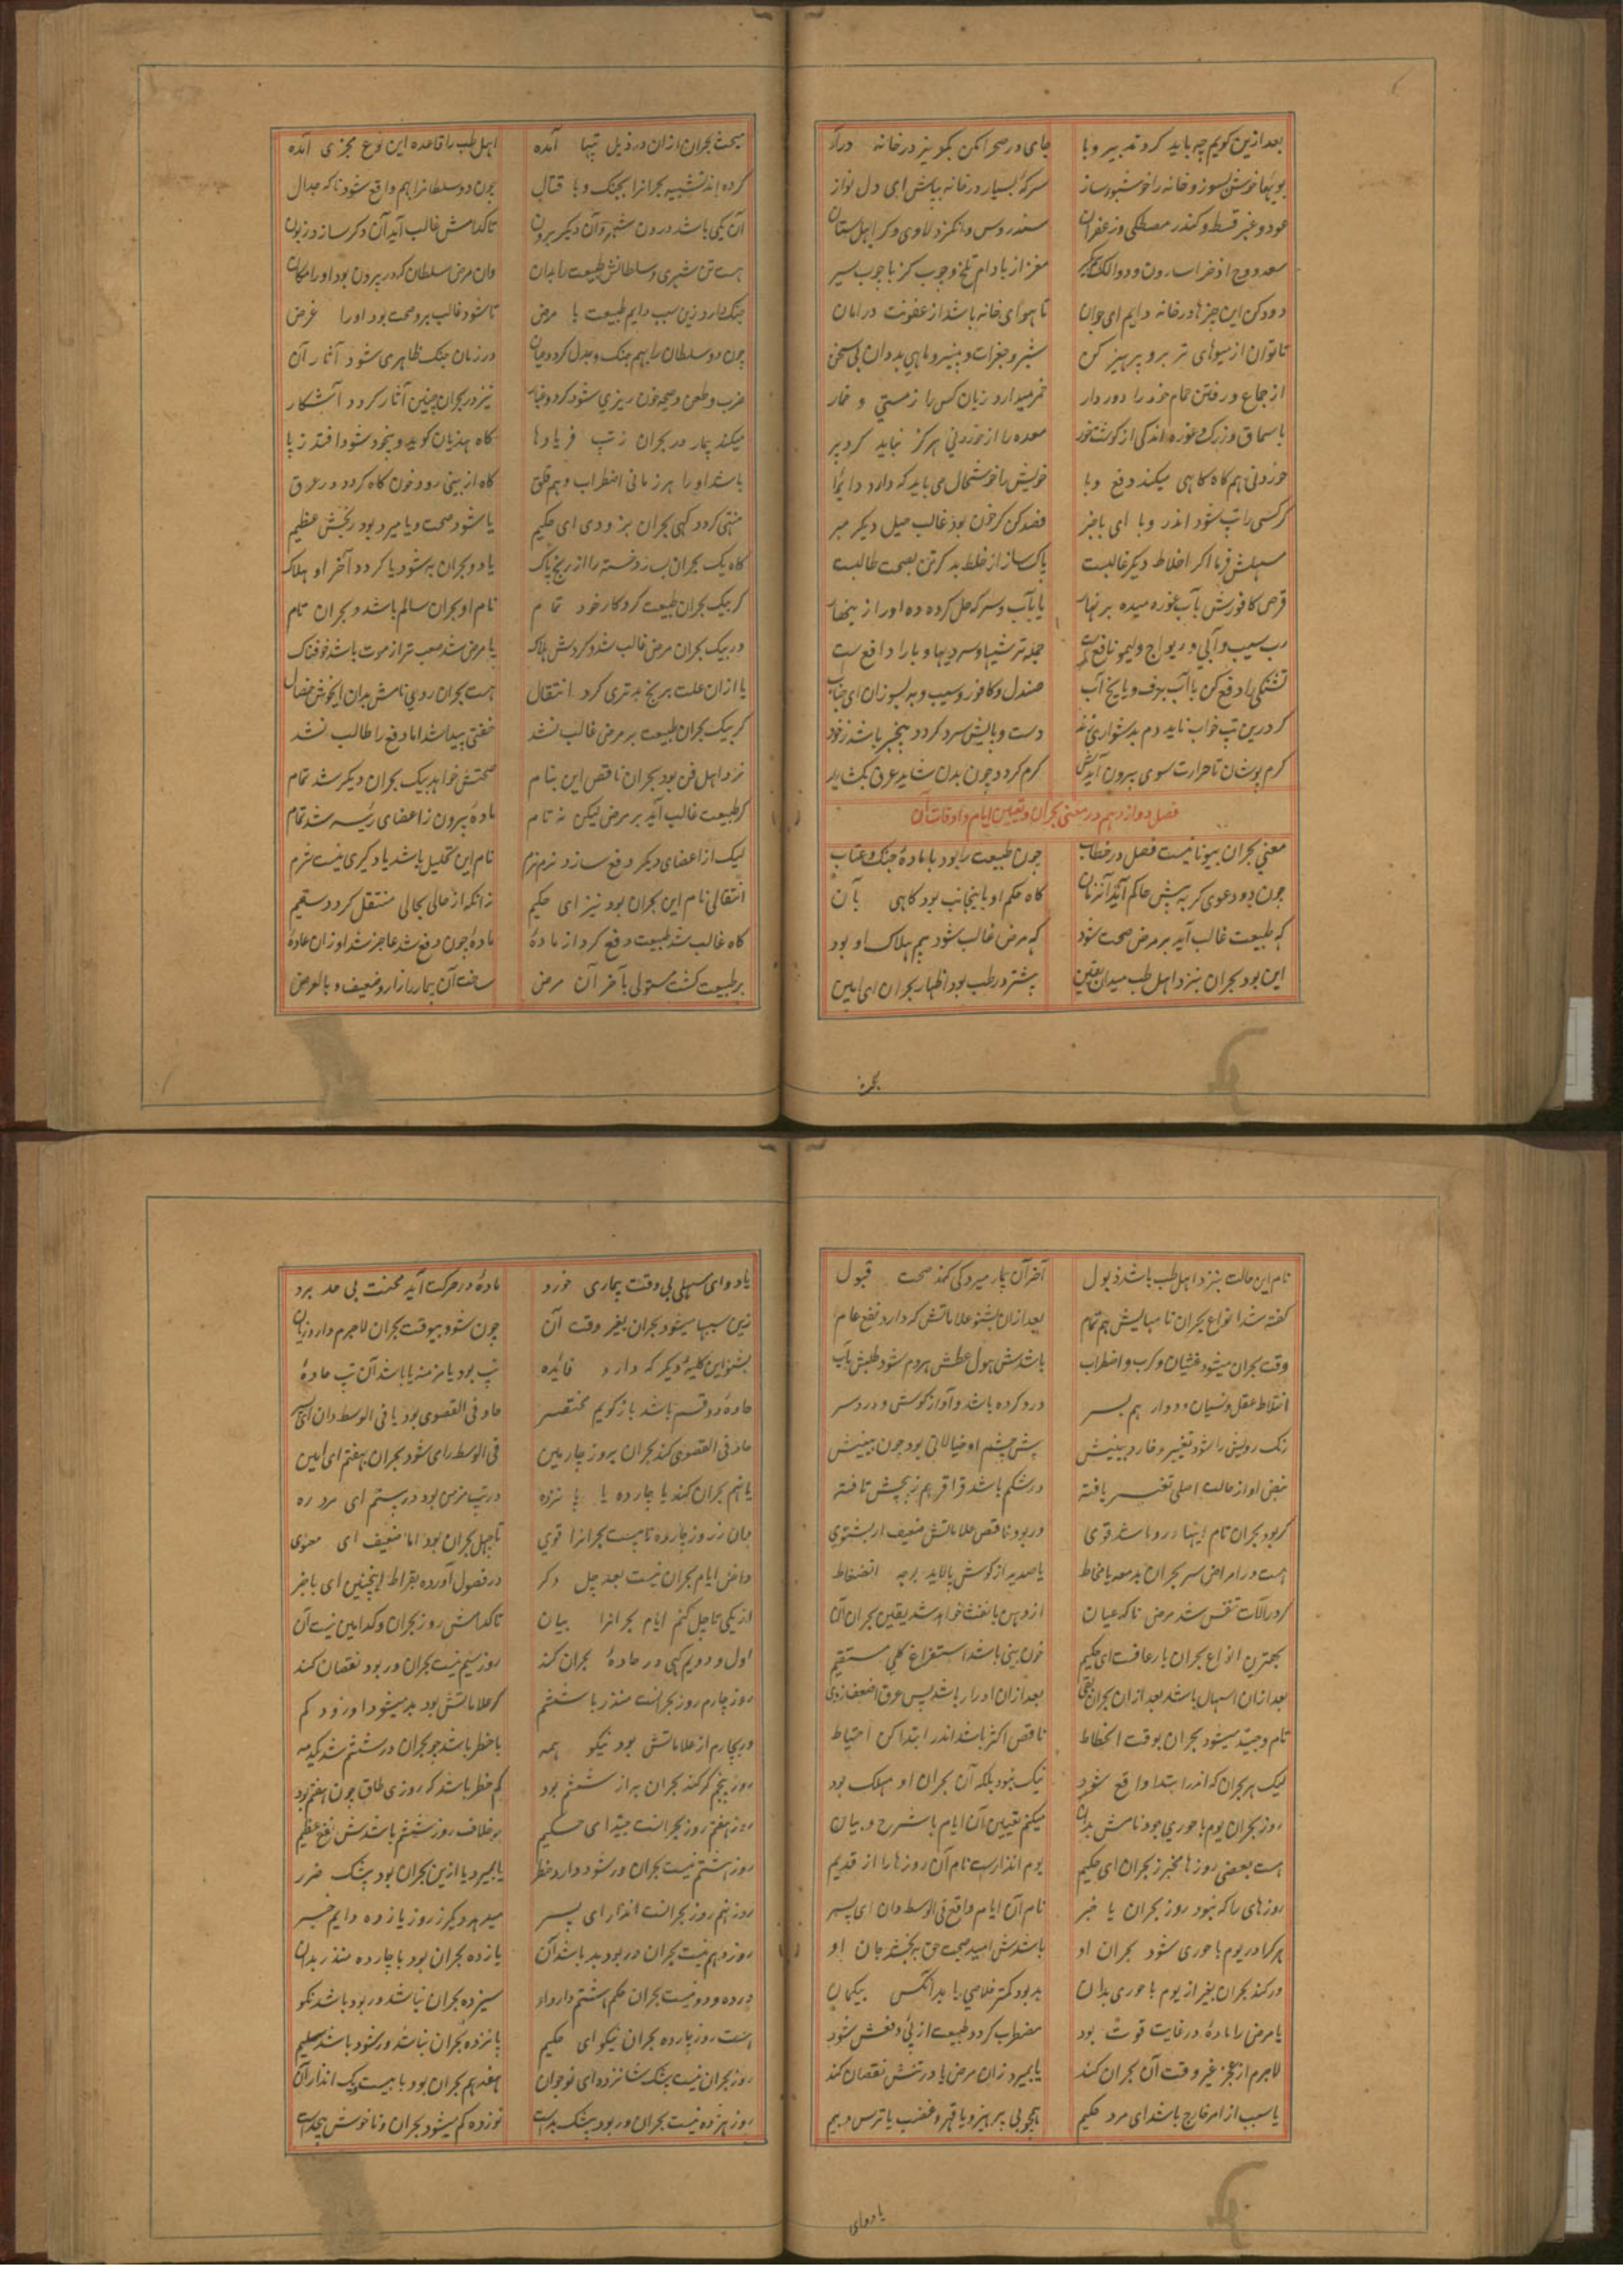 بعد ازین گویم چه باید کرد تدبیر وبا جای در صحرا مکن بگریز در خانه درآ
بویها خوش بسوز و خانه را خوشبو بساز سرکه بسیار در خانه بپاش ای دل نواز
عود و عنبر قسط و کندر مصطکی و زعفران سندروس و
مغز از بادام تلخ و چوب گز با چوب سیر
دود کن این چیزها در خانه دایم ای جوان تا هوای خانه باشد از عفونت در امان
تا توان از میوهای تر برو پرهیز کن شیر و جغرات و پنیر و ماهی بد دان بی سخن
از جماع و رفتن حمام خود را دور دار خمر میدارد زیان کس را ز مستی و خمار
با سماق و زرک و غوره اندکی از گوشت خور معده را از خوردنی هرگز نباید کرد پر
خوردنی هم گاه گاهی میکند دفع وبا خویش را خوشحال می باید که دارد دایما
گر کسی را تب شود اندر وبا ای باخبر فصد کن گر خون بود غالب میل دیگر مبر
مسهلش فرما اگر اخلاط دیگر غالبست پاک ساز از خلط بد گر تن بصحت طالبست
قرص کافورش بآب غوره میده بر نهار یا بآب و سرکه حل کرده ده او را
رب سیب و آبی و ریواج و لیمو نافع است جمله ترشیها و سردیها وبا را دافع است
تشنگی را دفع کن با آب برف و یا یخ آب صندل و کافور و سیب و به بسوزان ای جناب
گر درین تب خواب ناید دم بدشواری زند دست و پایش سرد گردد بیخبر باشد ز خود
گرم پوشان تا حرارت سوی بیرون آیدش گرم گردد چون بدن شاید عرق بگشایدش
فصل دوازدهم در معنی بحران و تعیین ایام و اوقات آن
معنی بحران بیونانیست فصل در خطاب چون طبیعت را بود با ماده جنگ و عتاب
چون دو دعوی گر به پیش حاکم آیند آنزمان گاه حکم او باینجانب بود گاهی بآن
گه طبیعت غالب آید بر مرض صحت شود گه مرض غالب شود بیم هلاک او بود
این بود بحران بنزد اهل طب میدان یقین بیشتر در طب بود اظهار بحران ای امین
بحث
مبحث بحران ازان در ذیل تبها آمده اهل طب را قاعده این نوع مجری آمده
کرده اند تشبیه بحرانرا بجنگ و با قتال چون دو سلطانرا بهم واقع شود ناگه جدال
آن یکی باشد درون شهر و آن دیگر برون تا کدامش غالب آید آن دگر سازد زبون
هست تن شهری و سلطانش طبیعت را بدان وان مرض سلطان که در بیرون بود او را مکان
جنگ دارد زین سبب دایم طبیعت با مرض تا شود غالب برو صحت بود او را غرض
چون دو سلطان را بهم جنگ و جدل گردد عیان در زمان جنگ ظاهر می شود آثار آن
ضرب و طعن و صیحه خون ریزی شود گرد و غبار نیز در بحران چنین آثار گردد آشکار
میکند بیمار در بحران ز تب فریادها گاه هذیان گوید و بیخود شود افتد ز پا
باشد او را هر زمانی اضطراب و هم قلق گاه از بینی رود خون گاه گردد در عرق
منتهی گردد گهی بحران بزودی ای حکیم یا شود صحت و یا میرد بود رنجش عظیم
گاه یک بحران بسازد خسته را از رنج پاک یا دو بحران به شود یا گردد آخر او هلاک
گر بیک بحران طبیعت کرد کار خود تمام نام او بحران سالم باشد و بحران تام
ور بیک بحران مرض غالب شد و کردش هلاک یا مرض شد صعب تر از موت باشد خوفناک
یا ازان علت برنج بدتری کرد انتقال هست بحران ردی نامش بدان ای خوش خصال
گر بیک بحران طبیعت بر مرض غالب نشد خفتی پیدا شد اما دفع را طالب نشد
نزد اهل فن بود بحران ناقص این بنام صحتش خواهد بیک بحران دیگر شد تمام
گر طبیعت غالب آید بر مرض لیکن نه تام ماده بیرون ز اعضای رئیسه شد تمام
لیک از اعضای دیگر دفع سازد نرم نرم نام این تحلیل باشد یاد گیری نیست شرم
انتقالی نام این بحران بود نیز ای حکیم زانکه از حالی بحالی منتقل گردد سقیم
گاه غالب شد طبیعت دفع کرد از ماده ماده چون دفع شد عاجز شد او زان عاده
بر طبیعت گشت مستولی بآخر آن مرض ساخت آن بیمار را زار و ضعیف و بالعرض
نام این حالت بنزد اهل طب باشد ذبول آخر آن بیمار میرد کی کند صحت قبول
گفته شد انواع بحران تا مبالیش هم تمام بعد ازان بشنو علاماتش که دارد نفع عام
وقت بحران میشود غشیان و کرب و اضطراب باشدش هول عطش هردم شود طبعش بآب
اختلاط عقل و نسیان و دوار هم بسر درد گرده باشد و آواز گوش و درد سر
رنگ رویش را شود تغییر و خارد بینیش پیش چشم او خیالاتی بود چون بینیش
نبض او از حالت اصلی تغییر یافته در شکم باشد قراقر هم ز پیچش تافته
گر بود بحران تام اینها درو باشد قوی ور بود ناقص علاماتش ضعیف ار بشنوی
هست در امراض سر بحران بد معه یا مخاط یا صدید از گوش پالاید
گر در آلات تنفس شد مرض ناگه عیان از دهن با نفث خواهد شد یقین بحران آن
بهترین انواع بحران با رعافت ای حکیم خون بینی باشد استفراغ کلی مستقیم
بعد ازان اسهال باشد بعد ازان بحران بقی بعد ازان ادرار باشد پس عرق
تام و جید میشود بحران بوقت انحطاط ناقص اکثر باشد اندر ابتدا کن احتیاط
لیک هر بحران که اندر ابتدا واقع شود نیک نبود بلکه آن بحران او مهلک بود
روز بحران یوم باحوری بود نامش بدان میکنم تعیین آن ایام با شرح و بیان
هست بعضی روزها مخبر ز بحران ای حکیم یوم انذارست نام آن روزها را از قدیم
روزهای را که نبود روز بحران یا خبر نام آن ایام واقع فی الوسط دان ای پسر
هرکرا در یوم باحوری شود بحران او باشدش امید صحت حق ببخشد جان او
ور کند بحران بغیر از یوم باحوری بدان بد بود کمتر خلاصی یابد آنکس بیگمان
یا مرض را ماده در غایت قوت بود مضطرب گردد طبیعت از پی دفعش شود
لاجرم از عجز غیر وقت آن بحران کند یا بمیرد زان مرض یا در تنش نقصان کند
یا سبب از امر خارج باشد ای مرد حکیم همچو بی پرهیز و یا قهر و غضب یا ترس و بیم
یا دوای
یا دوای مسهلی بی وقت بیماری خورد ماده در حرکت آید محنت بی حد برد
زین سببها میشود بحران بغیر وقت آن چون شود بیوقت بحران لاجرم دارد زیان
بشنو این کلیه دیگر که دارد فائده تب بود یا مزمنه یا باشد آن تب حاده
حاده دو قسم باشد باز گویم مختصر حاد فی القصوی بود یا فی الوسط دان ای پسر
حاد فی القصوی کند بحران بروز چارمین فی الوسط را می شود بحران بهفتم ای امین
یا نهم بحران کند یا چارده یا پانزده در تب مزمن بود در بیستم ای مرد ره
دان ز روز چارده تا بیست بحرانرا قوی تا چهل بحران بود اما ضعیف ای معنوی
داخل ایام بحران نیست بعد چل دگر در فصول آورده بقراط اینچنین ای باخبر
از یکی تا چل کنم ایام بحرانرا بیان تا کدامش روز بحران و کدامین نیست آن
اول و دویم گهی در حاده بحران کند روز سیم نیست بحران ور بود نقصان کند
روز چارم روز بحرانست منذر با ششم گر علاماتش بود بد میشود او زود گم
ور بچارم از علاماتش بود نیکو همه با خطر باشد چو بحران در ششم شد یکدمه
روز پنجم گر کند بحران به از ششم بود کم خطر باشد که روزی طاق چون هفتم بود
روز هفتم روز بحرانست جید ای حکیم بر خلاف روز ششم باشدش نفع عظیم
روز هشتم نیست بحران ور شود دارد خطر یا بمیرد یا ازین بحران بود بیشک ضرر
روز نهم روز بحرانست انذار ای پسر میدهد دیگر ز روز یازده دایم خبر
روز دهم نیست بحران ور بود بد باشد آن یازده بحران بود با چارده منذر بدان
در ده و دو نیست بحران حکم هشتم دارد او سیزده بحران نباشد ور بود باشد نکو
هست روز چارده بحران نیکو ای حکیم پانزده بحران نباشد ور شود باشد سلیم
روز بحران نیست بیشک شانزده ای نوجوان هفدهم بحران بود با بیست و یک انذار آن
روز هژده نیست بحران ور بود بیشک بدست نوزده کم میشود بحران و ناخوش بیحدست